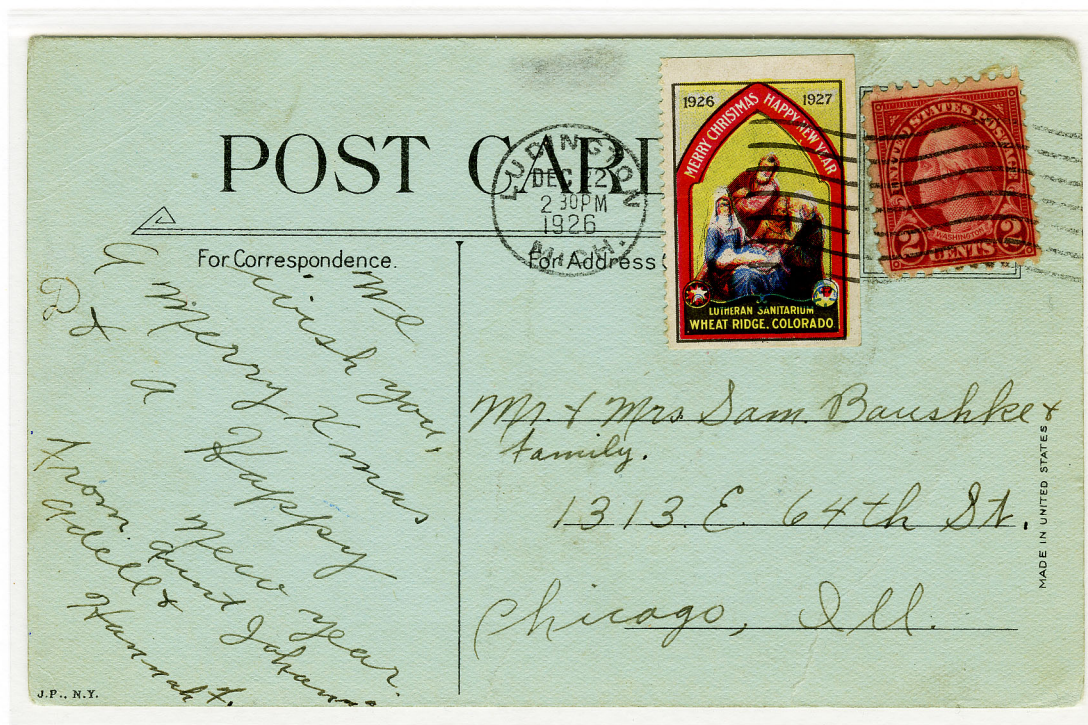 POST CARD
LUDINGTON
DEC 22
2 30 PM
1926
MICH.
1926 1927
MERRY CHRISTMAS HAPPY NEW YEAR
LUTHERAN SANITARIUM
WHEAT RIDGE, COLORADO
UNITED STATES POSTAGE
WASHINGTON
2 CENTS 2
For Correspondence.
For Address
We
wish you,
a Merry Xmas
& a Happy
New Year.
From Aunt Johann
Adell &
Hannah F.
Mr. & Mrs Sam. Baushke &
family.
1313. E. 64th St.
Chicago, Ill.
MADE IN UNITED STATES
J.P., N.Y.